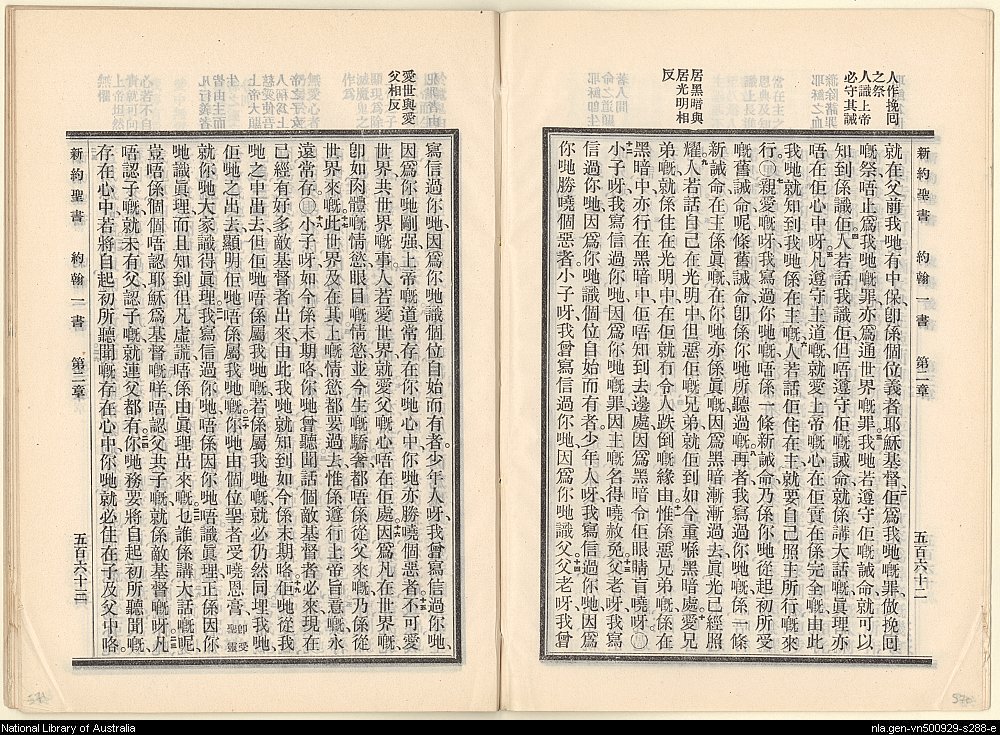 人作挽囘
之祭
人識上帝
必守其誡
居黑暗與
居光明相
反
新約聖書 約翰一書 第二章 五百六十二
就在父前我哋有中保、卽係個位義者耶穌基督、佢爲我哋嘅罪做挽囘
嘅祭、唔止爲我哋嘅罪、亦爲通世界嘅罪、我哋若遵守佢嘅誡命、就可以
知到係識佢、人若話我識佢、但唔遵守佢嘅誡命、就係講大話嘅、眞理亦
唔在佢心中呀、凡遵守主道嘅、就愛上帝嘅心、在佢實在係完全嘅、由此
我哋就知到我哋係在主嘅、人若話佢住在主、就要自己照主所行嘅來
行。親愛嘅呀、我寫過你哋嘅、唔係一條新誡命、乃係你哋從起初所受
嘅舊誡命呢、條舊誡命、卽係你哋所聽過嘅、再者我寫過你哋嘅、係一條
新誡命、在主係眞嘅、在你哋亦係眞嘅、因爲黑暗漸漸過去、眞光已經照
耀、人若話自己在光明中、但惡佢嘅兄弟、就佢到如今重喺黑暗處、愛兄
弟嘅、就係住在光明中、在佢就冇令人跌倒嘅緣由、惟係惡兄弟嘅、係在
黑暗中、亦行在黑暗中、佢唔知到去邊處、因爲黑暗令佢眼睛盲曉呀。
小子呀、我寫信過你哋、因爲你哋嘅罪、因主名得曉赦免、父老呀、我寫
信過你哋、因爲你哋識個位自始而有者、少年人呀、我寫信過你哋、因爲
你哋勝曉個惡者、小子呀、我曾寫信過你哋、因爲你哋識父、父老呀、我曾
愛世與愛
父相反
寫信過你哋、因爲你哋識個位自始而有者。少年人呀、我曾寫信過你哋、
因爲你哋剛强、上帝嘅道常存在你哋心中、你哋亦勝曉個惡者、不可愛
世界、共世界嘅事、人若愛世界、就愛父嘅心唔在佢處、因爲凡在世界嘅、
卽如肉體嘅情慾、眼目嘅情慾、並今生嘅驕奢、都唔係從父來嘅、乃係從
世界來嘅、此世界及在其上嘅情慾都要過去、惟係遵行上帝旨意嘅、永
遠常存。小子呀、如今係末期咯、你哋曾聽聞話個敵基督者必來、現在
已經有好多敵基督者出來、由此我哋就知到如今係末期咯、佢哋從我
哋之中出去、但佢哋唔係屬我哋嘅、若係屬我哋嘅、就必仍然同埋我哋、
佢哋之出去、顯明佢哋唔係屬我哋嘅、你哋由個位聖者受曉恩膏、卽受聖靈
就你哋大家識得眞理、我寫信過你哋、唔係因你哋唔識眞理、正係因你
哋識眞理、而且知到但凡虛謊唔係由眞理出來嘅、乜誰係講大話嘅呢、
豈唔係個個唔認耶穌爲基督嘅咩、唔認父共子嘅、就係敵基督嘅呀、凡
唔認子嘅、就未有父、認子嘅、就連父都有、你哋務要將自起初所聽聞嘅、
存在心中、若將自起初所聽聞嘅、存在心中、你哋就必住在子及父中咯。
新約聖書 約翰一書 第二章 五百六十三
National Library of Australia
nla.gen-vn500929-s288-e